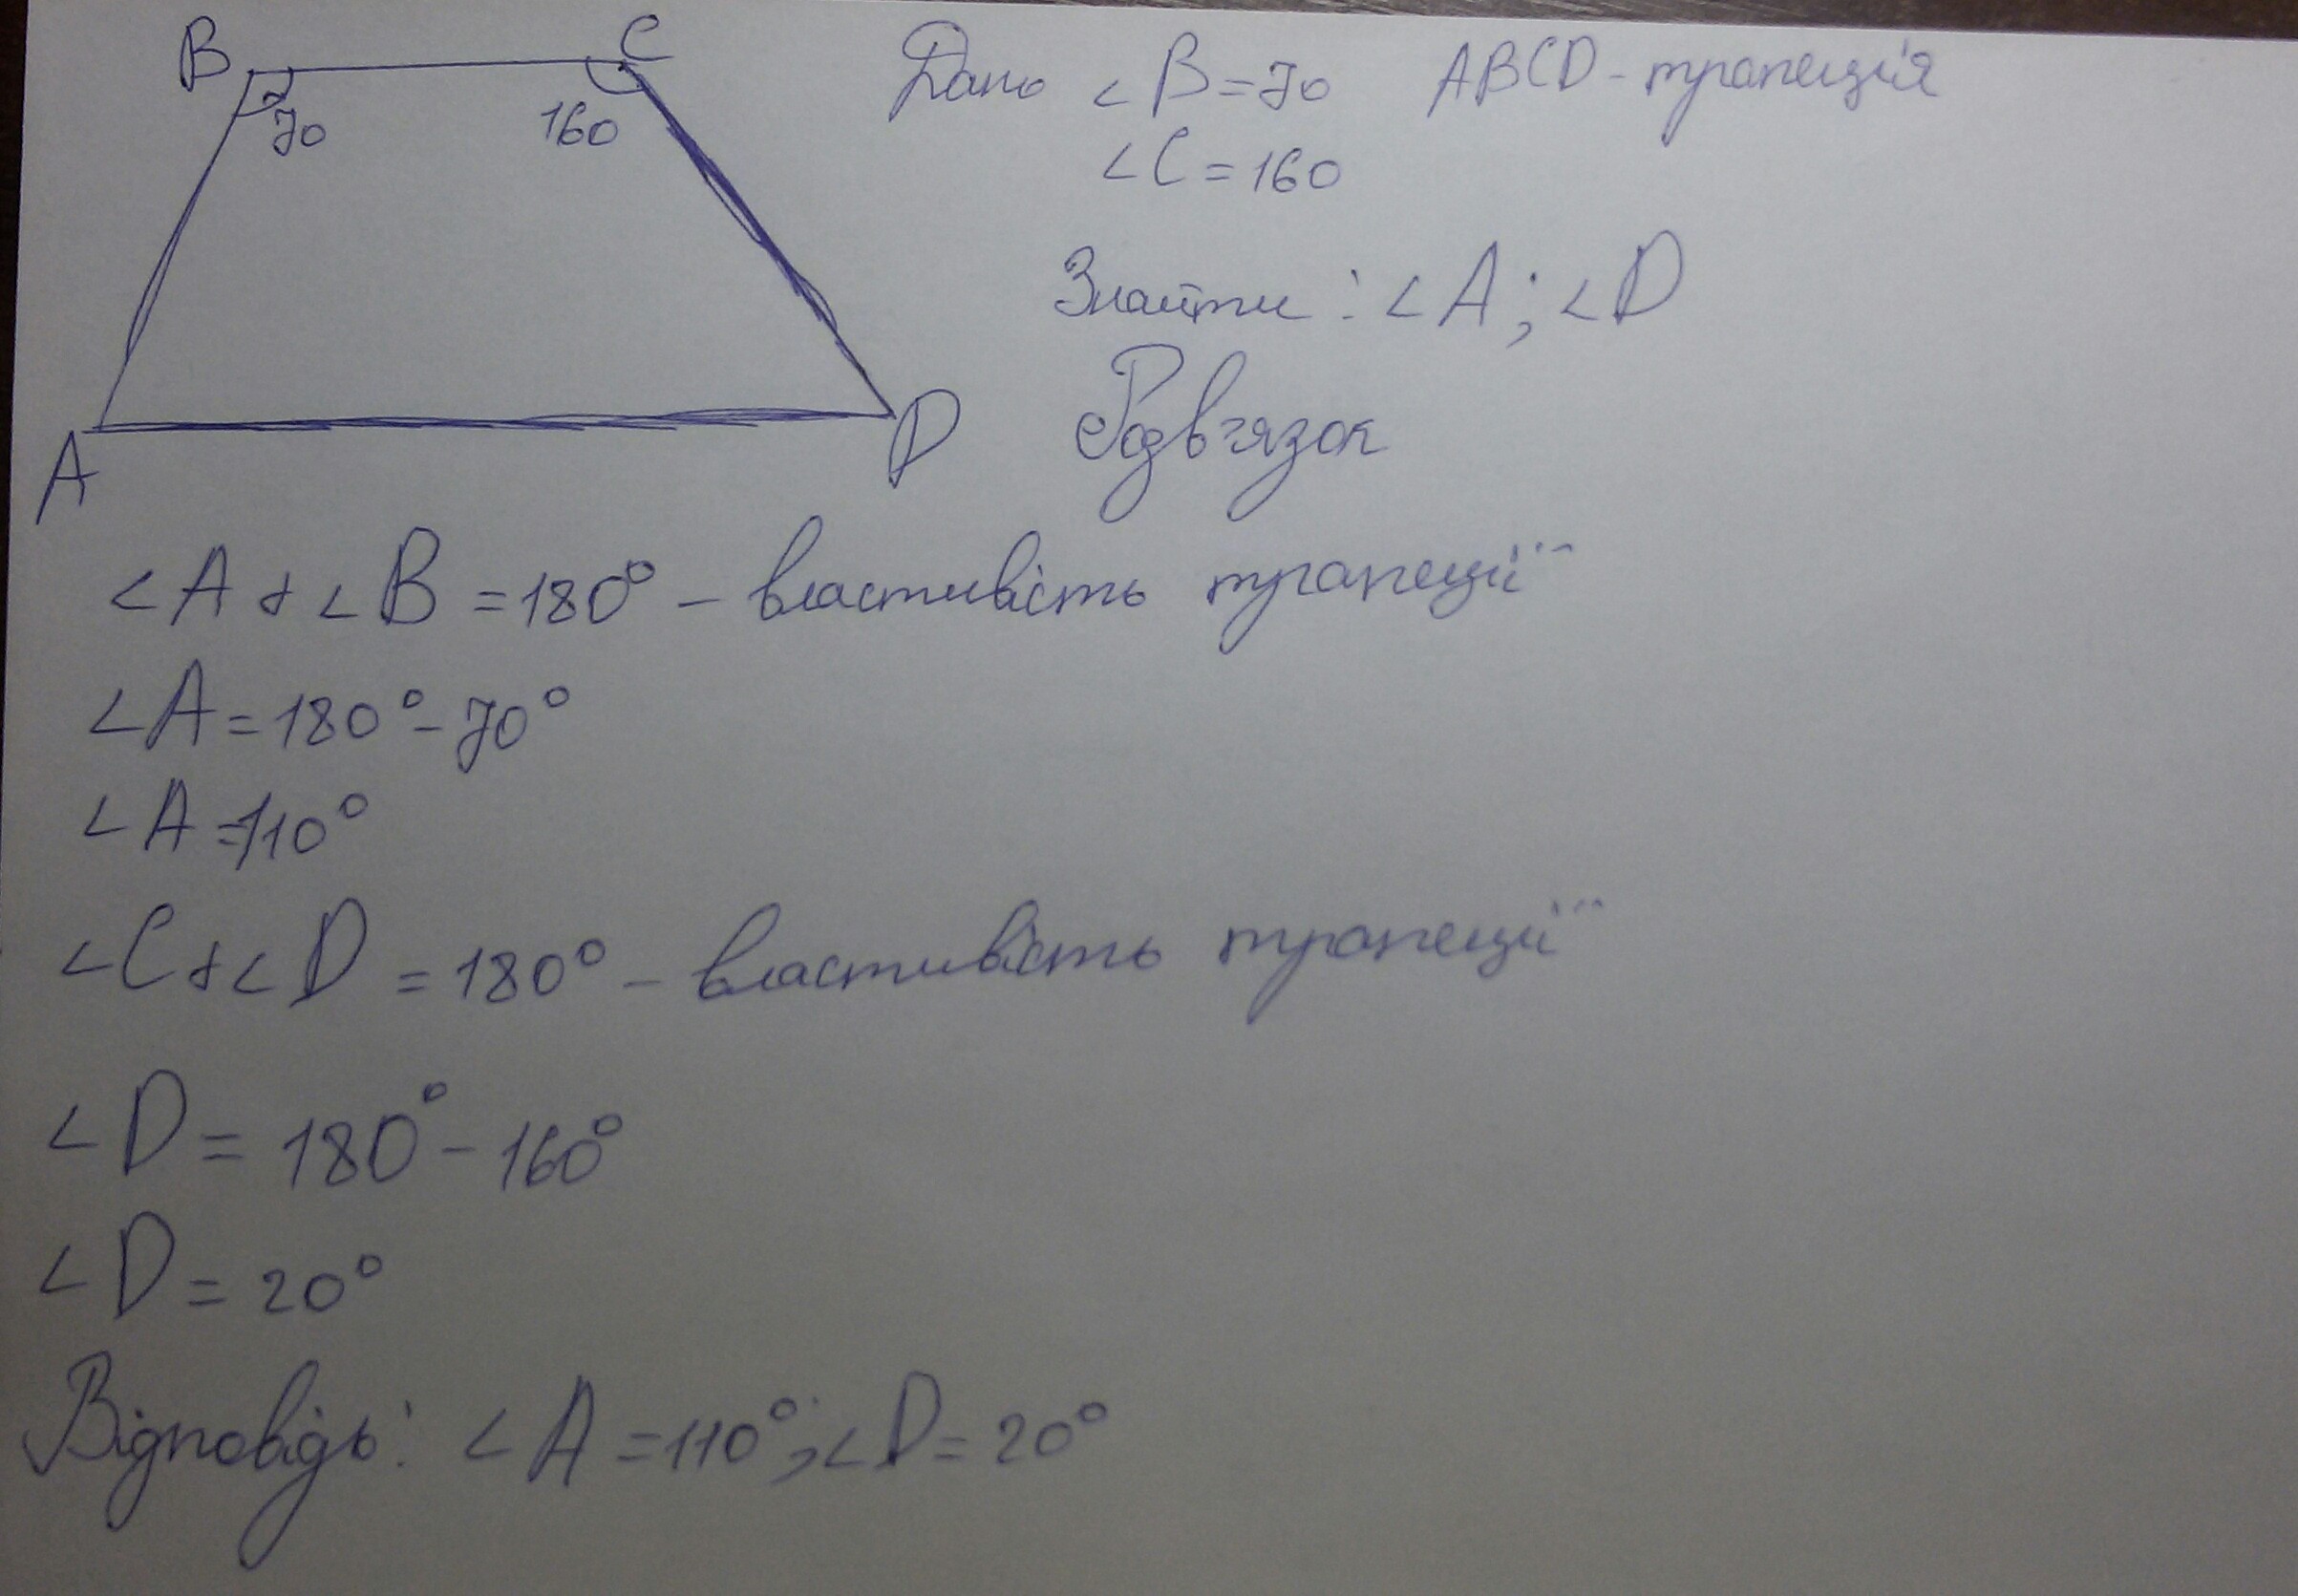 B C
70 160
A D
Дано ∠B=70 ABCD - трапеція
∠C=160
Знайти: ∠A; ∠D
Розв'язок
∠A + ∠B = 180° – властивість трапеції
∠A = 180° - 70°
∠A = 110°
∠C + ∠D = 180° – властивість трапеції
∠D = 180° - 160°
∠D = 20°
Відповідь: ∠A = 110°; ∠D = 20°